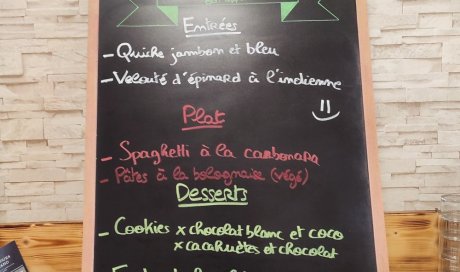 Entrées
- Quiche jambon et bleu
- Velouté d'épinard à l'indienne
Plat
- Spaghetti à la carbonara
- Pâtes à la bolognaise (végé)
Desserts
- Cookies x chocolat blanc et coco
x cacahuètes et chocolat